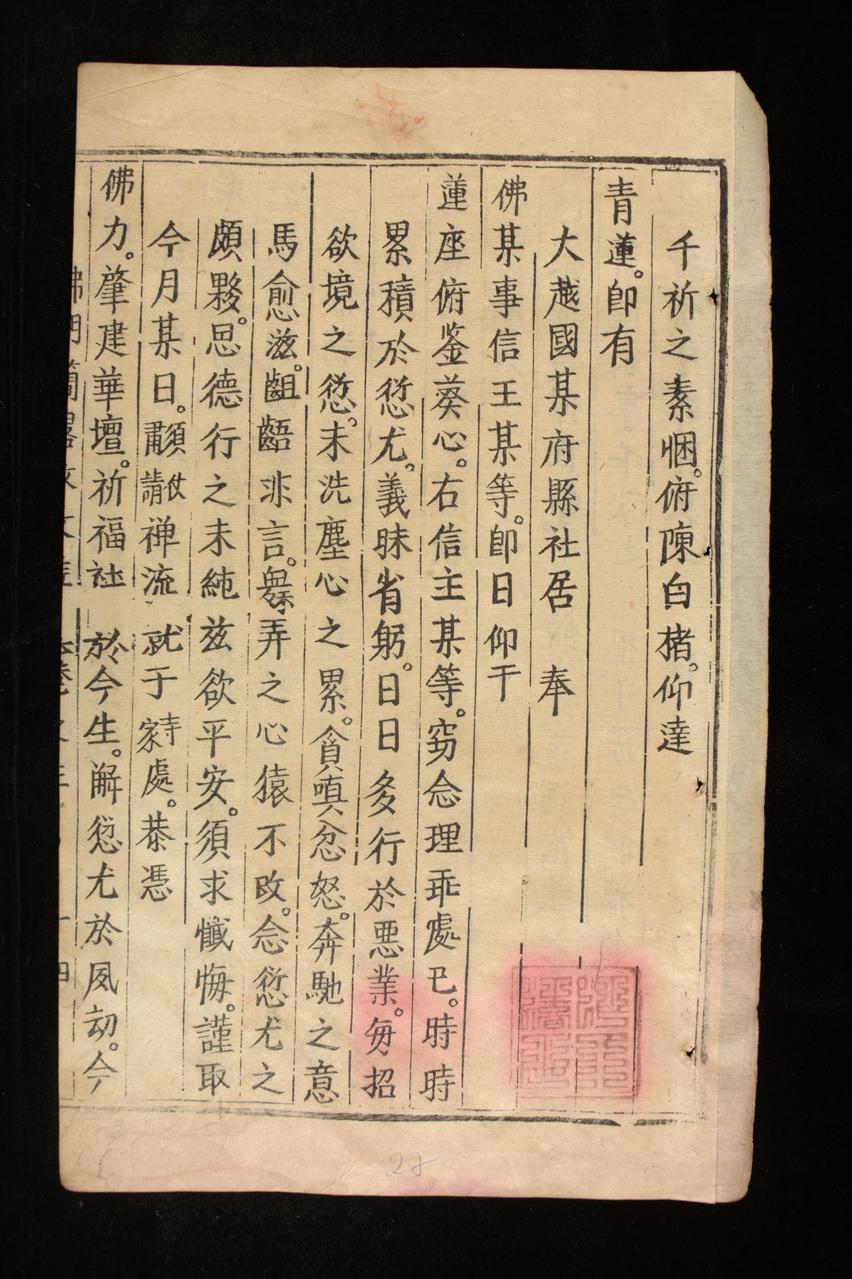 千祈之素悃。俯陳白楮。仰達
青蓮。卽有
大越國某府縣社居 奉
佛某事信主某等。卽日仰干
蓮座俯鉴葵心。右信主某等。窃念理乖處已。時時
累積於愆尤。義昧省躬。日日多行於惡業。每招
欲境之愆。未洗塵心之累。貪嗔忿怒。奔馳之意
馬愈滋。齟齬非言。舞弄之心猿不改。念愆尤之
頗夥。思德行之未純兹欲平安。須求懺悔。謹取
今月某日。肅請禅流就于家寺處。恭憑
佛力。肇建華壇。祈福祉於今生。解愆尤於夙劫。今
28